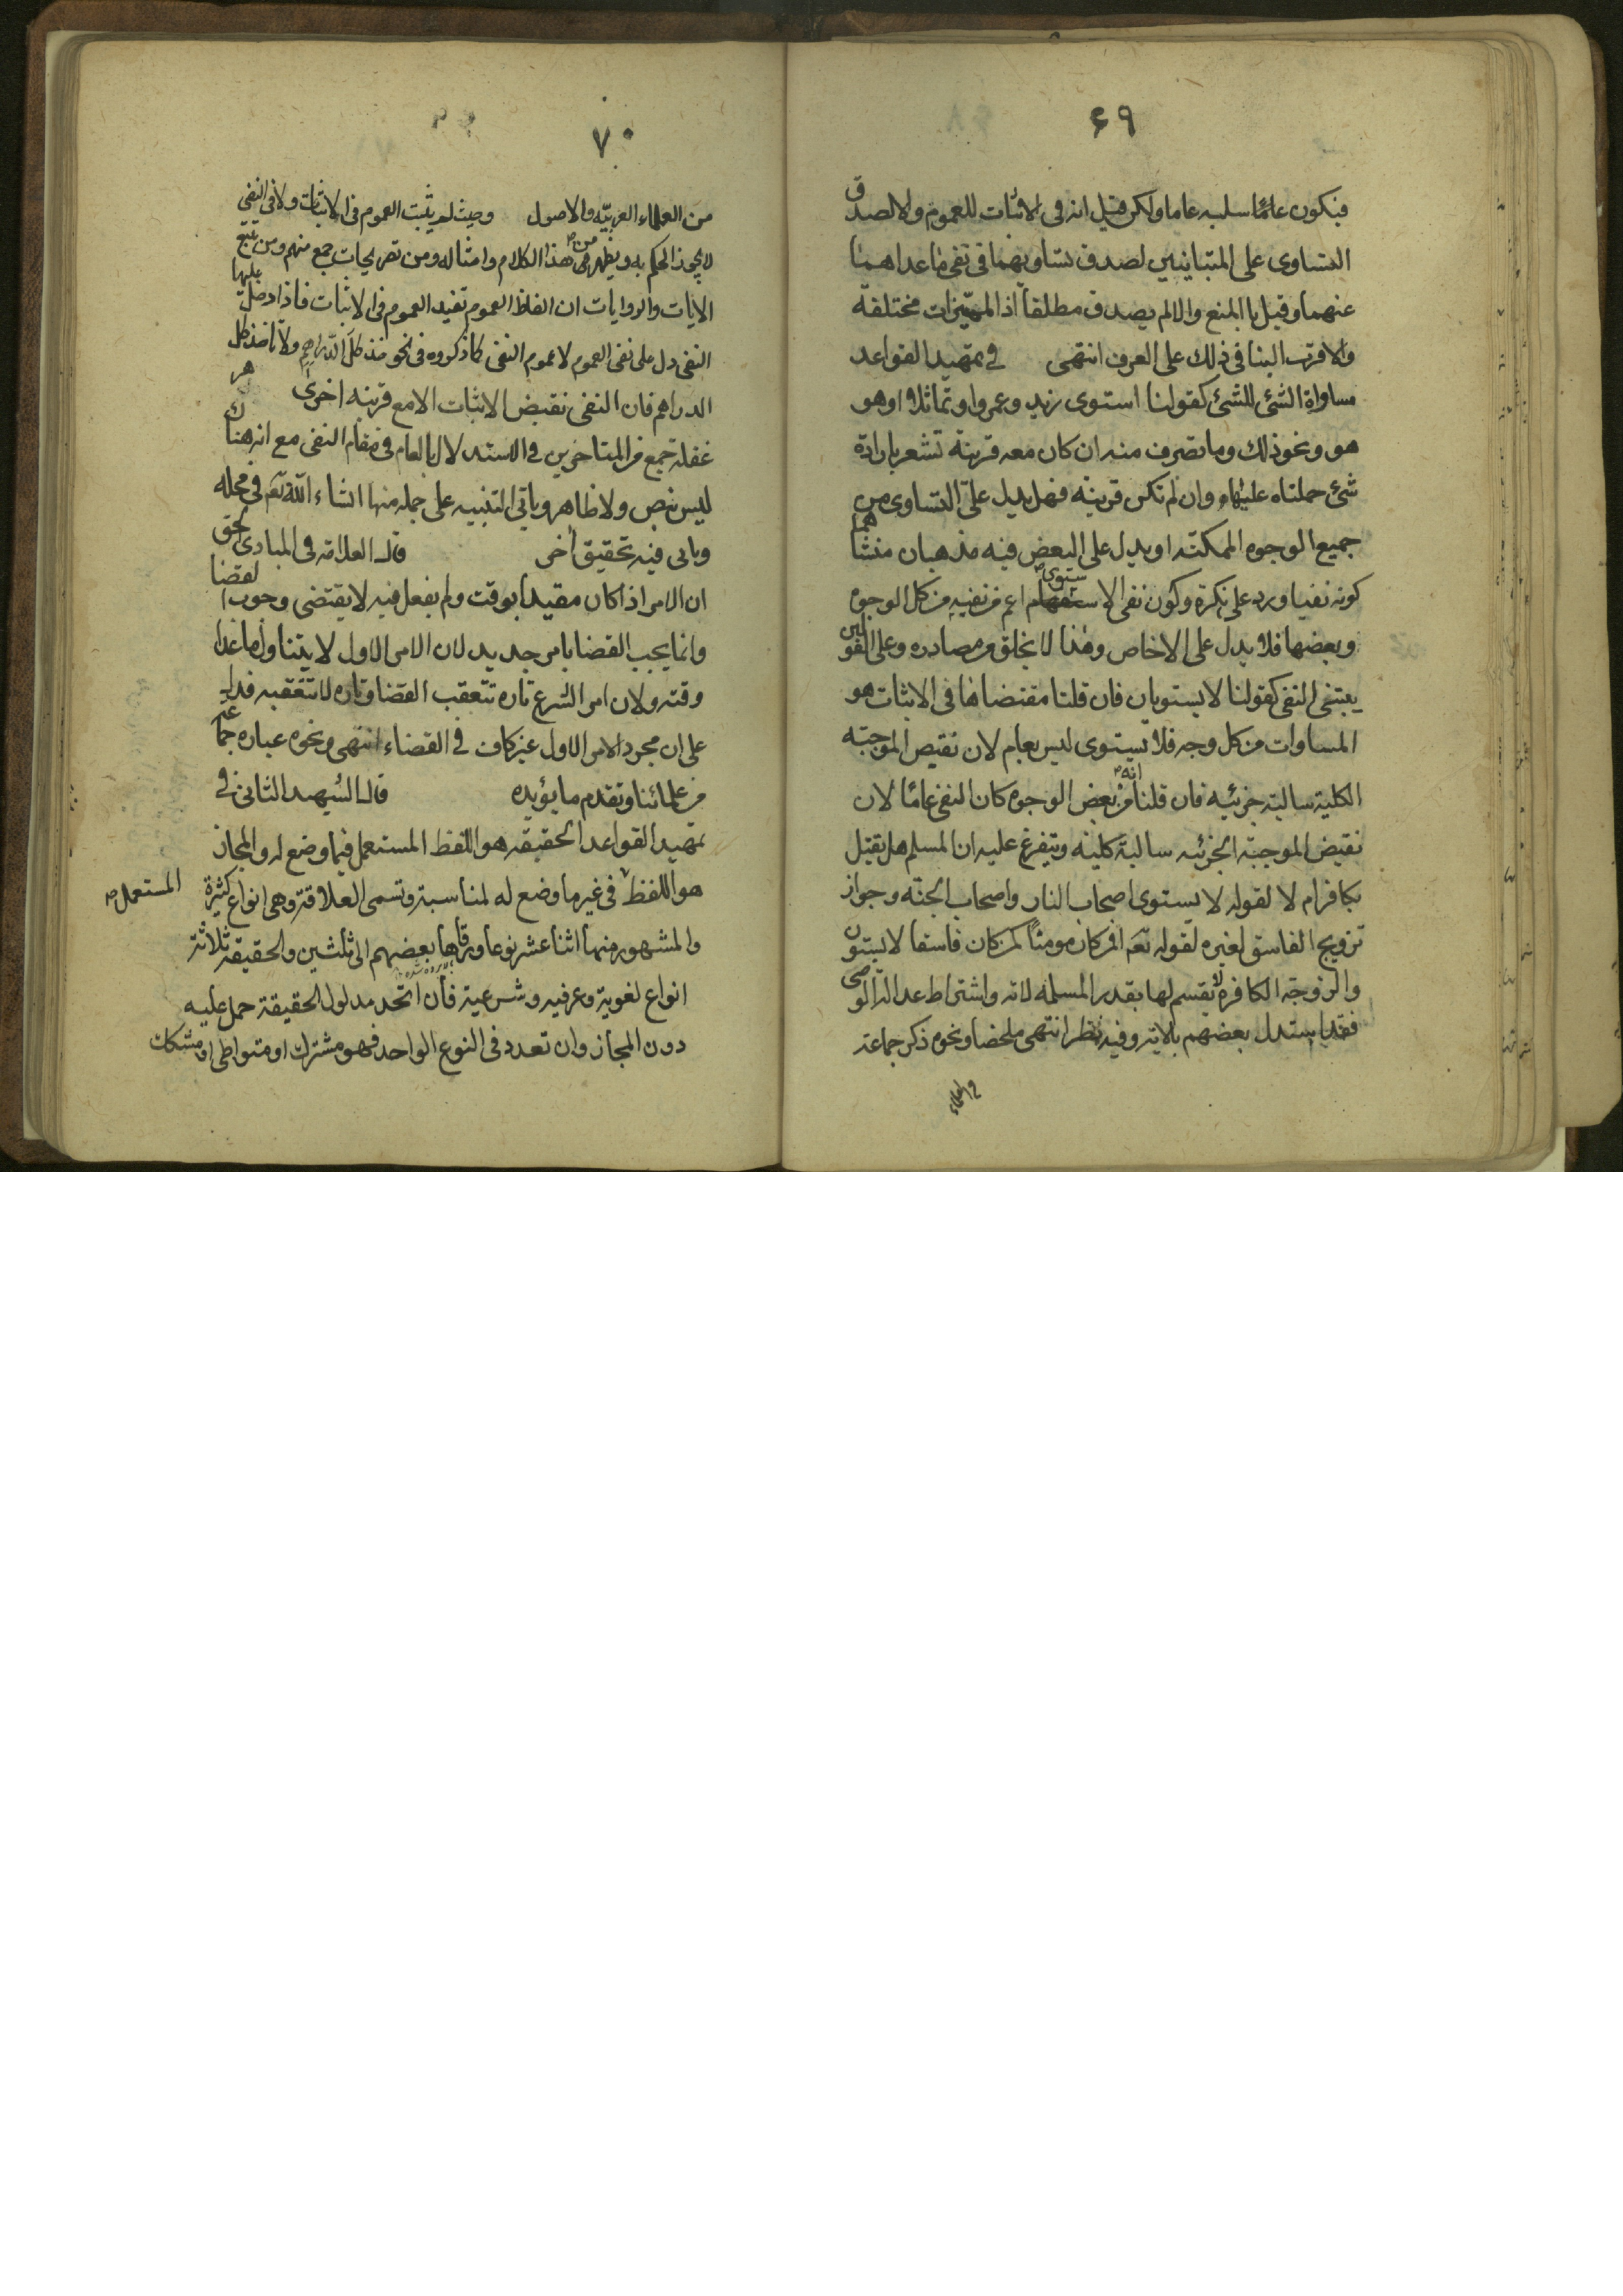 ۶۹
فيكون عامّا سلبه عاما ولكن قيل انه فى الاثبات للعموم والا لصدق
التساوى على المتباينين لصدق تساويهما فى نفى ما عداهما
عنهما وقيل با المنع والا لم يصدق مطلقا اذ المميّزات مختلفة
والاقرب البنا فى ذلك على العرف انتهى في تمهيد القواعد
مساواة الشئ للشئ كقولنا استوى زيد وعمرو او تماثلا او هو
هو ونحو ذلك وما تصرف منه ان كان معه قرينة تشعر بارادة
شئ حملناه عليهما وان لم تكن قرينة فهل يدل على التساوى من
جميع الوجوه الممكنه او يدل على البعض فيه مذهبان منشاهما
كونه نفيا ورد على نكرة وكون نفى الاستوى اعم من نفيه من كل الوجوه
وبعضها فلا يدل على الاخاص وهذا لا يخلق من مصادره وعلى القولين
يبتنى النفى كقولنا لا يستويان فان قلنا مقتضاها فى الاثبات هو
المساوات من كل وجه فلا يستوى ليس بعام لان نقيض الموجبة
الكلية سالبة جزئيه فان قلنا انه من بعض الوجوه كان النفى عامّا لان
نقيض الموجبة الجزئيه سالبة كلية ويتفرع عليه ان المسلم هل يقتل
بكافر ام لا لقوله لا يستوى اصحاب النار واصحاب الجنة وجواز
تزويج الفاسق لغيره لقوله تعه افمن كان مومنًا كمن كان فاسقا لا يستون
والزوجة الكافرة لا تقسم لها بقدر المسلمه لانه واشتراط عدالة الوصى
فقد استدل بعضهم بالايه وفيه نظر انتهى ملخصا ونحوه ذكر جماعة
من العلماء
۷۰
من العلماء العربيّه والاصول وحيث لم يثبت العموم فى الاثبات ولا فى النفى
لا يجوز الحكم به ويظهر من هذا الكلام وامثاله ومن تصريحات جمع منهم ومن تتبع
الايات والروايات ان الفاظ العموم تفيد العموم فى الاثبات فاذا دخل عليها
النفى دل على نفى العموم لا عموم النفى كما ذكروه فى نحو خذ كل الدراهم ولا تاخذ كل
الدراهم فان النفى نقيض الاثبات الا مع قرينه اخرى
غفلة جمع من المتاخرين في الاستدلال بالعام فى مقام النفى مع انه هناك
ليس نص ولا ظاهر وياتي التنبيه على جمله منها انشاء الله تعه فى محله
وياتى فيه تحقيق اخر قال العلامه فى المبادى الحق
ان الامر اذا كان مقيدا بوقت ولم يفعل فيه لا يقتضى وجوب القضا
وانما يجب القضا بامر جديد لان الامر الاول لا يتناول ما عدا
وقته ولان امر الشرع تارة تتعقب القضا وتاره لا تتعقبه فدل
على ان مجرد الامر الاول غير كاف في القضاء انتهى ونحوه عبارة جماعة
من علمائنا وتقدم ما يؤيده قال الشهيد الثانى فى
تمهيد القواعد الحقيقه هو اللفظ المستعمل فيما وضع له والمجاز
هو اللفظ المستعمل فى غير ما وضع له لمناسبة وتسمى العلاقة وهى انواع كثيرة
والمشهور منها اثنا عشر نوعا ورقاها بعضهم الى ثلثين والحقيقه ثلاثة
انواع لغوية وعرفيه وشرعية فان اتحد مدلول الحقيقة حمل عليه
دون المجاز وان تعدد فى النوع الواحد فهو مشترك او متواطى او مشكك